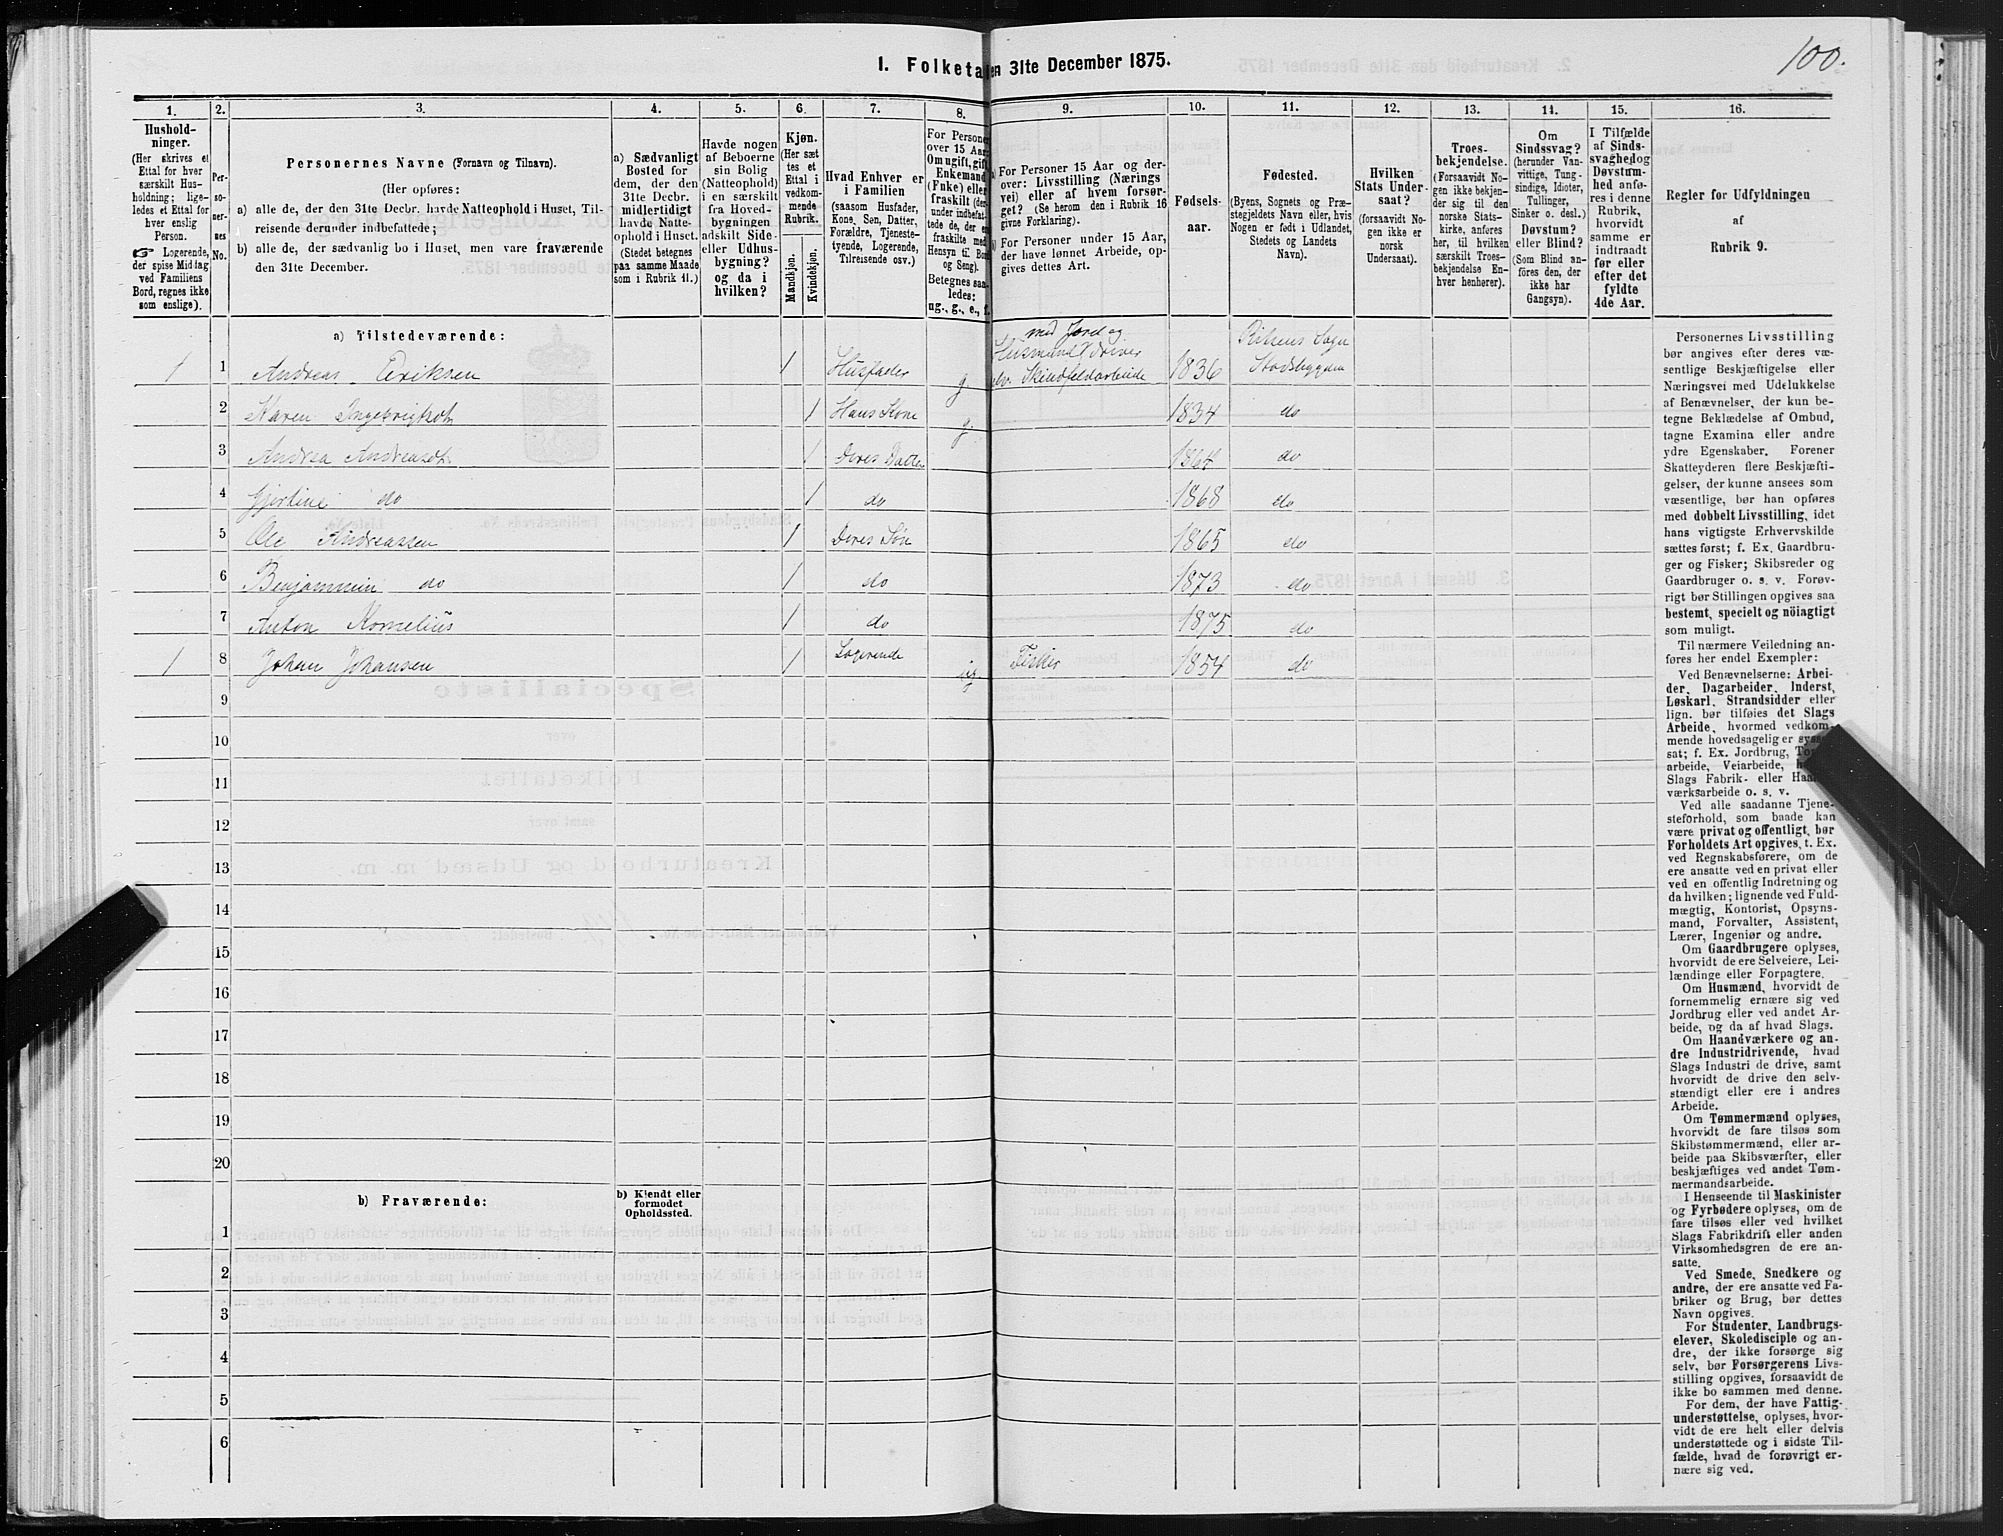 100.
1. Folketal den 31te December 1875.
1. 2. 3. 4. 5. 6. 7. 8. 9. 10. 11. 12. 13. 14. 15. 16.
Hushold-
ninger.
(Her skrives et
Ettal for hver
særskilt Hus-
holdning; lige-
ledes et Ettal for
hver enslig
Person.
☞ Logerende,
der spise Middag
ved Familiens
Bord, regnes ikke
som enslige).
Per-
so-
ner-
nes
No.
Personernes Navne (Fornavn og Tilnavn).
(Her opføres:
a) alle de, der den 31te Decbr. havde Natteophold i Huset, Til-
reisende derunder indbefattede;
b) alle de, der sædvanlig bo i Huset, men vare fraværende
den 31te December.
a) Sædvanligt
Bosted for
dem, der den
31te Decbr.
midlertidigt
havde Natte-
ophold i Huset.
(Stedet betegnes
paa samme Maade
som i Rubrik 11.)
Havde nogen
af Beboerne
sin Bolig
(Natteophold)
i en særskilt
fra Hoved-
bygningen
adskilt Side-
eller Udhus-
bygning?
og da i
hvilken?
Kjøn.
(Her sæt
tes et
Ettal i
vedkom-
mende
Rubrik.
Mandkjøn.
Kvindekjøn.
Hvad Enhver er
i Familien
(saasom Husfader,
Kone, Søn, Datter,
Forældre, Tjeneste-
tyende, Logerende,
Tilreisende osv.).
For Personer
over 15 Aar:
Om ugift, gift,
Enkemand
(Enke) eller
fraskilt (der-
under indbefat-
tede de, der ere
fraskilte med
Hensyn til Bord
og Seng).
Betegnes saa-
ledes:
ug., g., e., f.
a) For Personer 15 Aar og der-
over: Livsstilling (Nærings
vei) eller af hvem forsør-
get? (Se herom den i Rubrik 16
givne Forklaring).
b) For Personer under 15 Aar,
der have lønnet Arbeide, op-
gives dettes Art.
Fødsels-
aar.
Fødested.
(Byens, Sognets og Præ-
stegjeldets Navn eller, hvis
Nogen er født i Udlandet,
Stedets og Landets
Navn).
Hvilken
Stats Under-
saat?
(forsaavidt No-
gen ikke er
norsk
Undersaat).
Troes-
bekjendelse.
(Forsaavidt No-
gen ikke bekjen-
der sig til den
norske Stats-
kirke, anføres
her, til hvilken
særskilt Troes-
bekjendelse En-
hver henhører).
Om
Sindssvag?
(herunder Van-
vittige, Tung-
sindige, Idioter,
Tullinger,
Sinker o. desl.)
Døvstum?
eller Blind?
(Som Blind an-
føres den, der
ikke har
Gangsyn).
I Tilfælde
af Sinds-
svaghed og
Døvstum-
hed anfø-
res i denne
Rubrik,
hvorvidt
samme er
indtraadt
før eller
efter det
fyldte
4de Aar.
Regler for Udfyldningen
af
Rubrik 9.
a) Tilstedeværende:
med Jord og
Rissens Sogn
1 1 Andreas Eriksen 1 Husfader g. Husmand driver
selv. Skindfeldarbeide 1836 Stadsbygden
2 Karen Ingebrigtsdt 1 Hans Kone g. 1834 do
3 Andrea Andreasdt. 1 Deres Datter 1864 do
4 Gjertine do 1 do 1868 do
5 Ole Andreassen 1 Deres Søn 1865 do
6 Benjammin do 1 do 1873 do
7 Anton Kornelius 1 do 1875 do
1 8 Johan Johansen 1 Logerende ug. Fisker 1854 do
9
10
11
12
13
14
15
16
17
18
19
20
b) Fraværende:
b) Kjendt eller
formodet
Opholdssted.
1
2
3
4
5
6
Personernes Livsstilling
bør angives efter deres væ-
sentlige Beskjæftigelse eller
Næringsvei med Udelukkelse
af Benævnelser, der kun be-
tegne Beklædelse af Ombud,
tagne Examina eller andre
ydre Egenskaber. Forener
Skatteyderen flere Beskjæfti-
gelser, der kunne ansees som
væsentlige, bør han opføres
med dobbelt Livsstilling, idet
hans vigtigste Erhvervskilde
sættes først; f. Ex. Gaardbru-
ger og Fisker; Skibsreder og
Gaardbruger o. s. v. Forøv-
rigt bør Stillingen opgives saa
bestemt, specielt og nöiagtigt
som muligt.
Til nærmere Veiledning an-
føres her endel Exempler:
Ved Benævnelserne: Arbei-
der, Dagarbeider, Inderst,
Løskarl, Strandsidder eller
lign. bør tilføies det Slags
Arbeide, hvormed vedkom-
mende hovedsagelig er syssel-
sat; f. Ex. Jordbrug,
arbeide, Veiarbeide,
Slags Fabrik- eller
værksarbeide o. s. v.
Ved alle saadanne Tjene-
steforhold, som baade kan
være privat og offentligt, bør
Forholdets Art opgives, t. Ex.
ved Regnskabsførere, om de
ere ansatte ved en privat eller
ved en offentlig Indretning og
da hvilken; lignende ved Fuld-
mægtig, Kontorist, Opsyns-
mand, Forvalter, Assistent,
Lærer, Ingeniør og andre.
Om Gaardbrugere oplyses,
hvorvidt de ere Selveiere, Lei-
lændinge eller Forpagtere.
Om Husmænd, hvorvidt de
fornemmelig ernære sig ved
Jordbrug eller ved andet Ar-
beide, og da af hvad Slags.
Om Haandværkere og an-
dre Industridrivende, hvad
Slags Industri de drive, samt
hvorvidt de drive den selv-
stændigt eller ere i andres
Arbeide.
Om Tømmermænd oplyses,
hvorvidt de fare tilsøs som
Skibstømmermænd, eller ar-
beide paa Skibsværfter, eller
beskjæftiges ved andet Tøm-
mermandsarbeide.
I Henseende til Maskinister
og Fyrbødere oplyses, om de
fare tilsøs eller ved hvilket
Slags Fabrikdrift eller anden
Virksomhedsgren de ere an-
satte.
Ved Smede, Snedkere og
andre, der ere ansatte ved Fa-
briker og Brug, bør dettes
Navn opgives.
For Studenter, Landbrugs-
elever, Skoledisciple og an-
dre, der ikke forsørge sig
selv, bør Forsørgerens Livs-
stilling opgives, forsaavidt de
ikke bo sammen med denne.
For dem, der have Fattig-
understøttelse, oplyses, hvor-
vidt de ere helt eller delvis
understøttede og i sidste Til-
fælde, hvad de forøvrigt er-
nære sig ved.